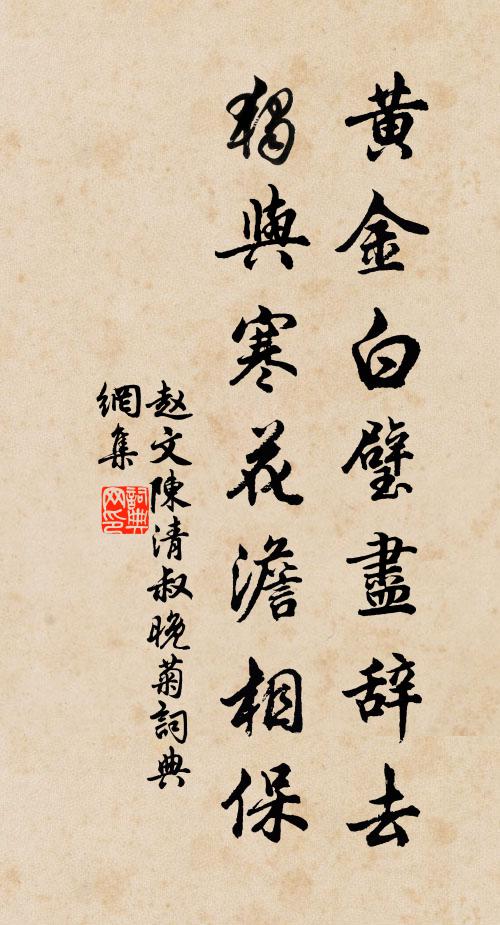 黄金白璧盡辞去
獨與寒花澹相保
赵文陳清叔晚菊詞典
網集
詞典
网印